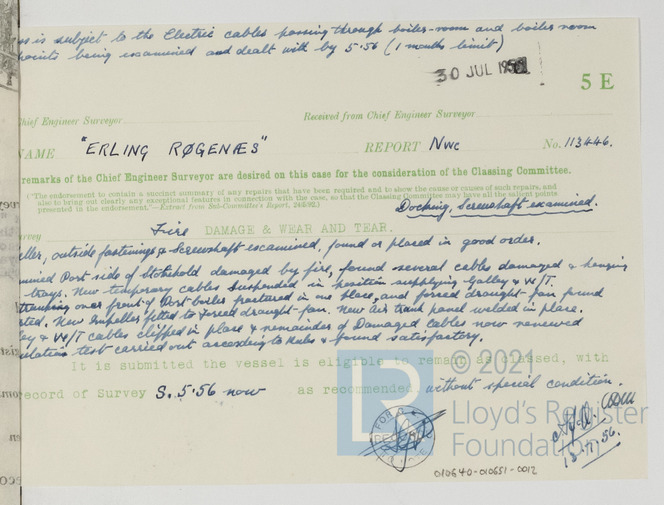 is subject to the Electric cables passing through boiler-room and boiler room
points being examined and dealt with by 5·56 (1 months limit)
30 JUL 195
5 E
Chief Engineer Surveyor
Received from Chief Engineer Surveyor
NAME "ERLING RØGENÆS" REPORT Nwc No. 113446.
remarks of the Chief Engineer Surveyor are desired on this case for the consideration of the Classing Committee.
("The endorsement to contain a succinct summary of any repairs that have been required and to show the cause or causes of such repairs, and
also to bring out clearly any exceptional features in connection with the case, so that the Classing Committee may have all the salient points
presented in the endorsement."—Extract from Sub-Committee's Report, 24/8/92.)
Docking, Screwshaft examined.
Fire DAMAGE & WEAR AND TEAR.
outside fastenings & Screwshaft examined, found or placed in good order.
Port side of Stokehold damaged by fire, found several cables damaged & hanging
trays. New temporary cables suspended in position supplying Galley & W/T.
over front of Port boiler fractured in one place, and forced draught-fan found
New impeller fitted to forced draught-fan. New Air trunk panel welded in place.
& W/T cables clipped in place & remainder of Damaged cables now renewed
test carried out according to Rules & found satisfactory.
It is submitted the vessel is eligible to remain as classed, with
record of Survey S. 5·56 now as recommended, without special condition.
© 2021
Lloyd's Register
Foundation
010640-010651-0012